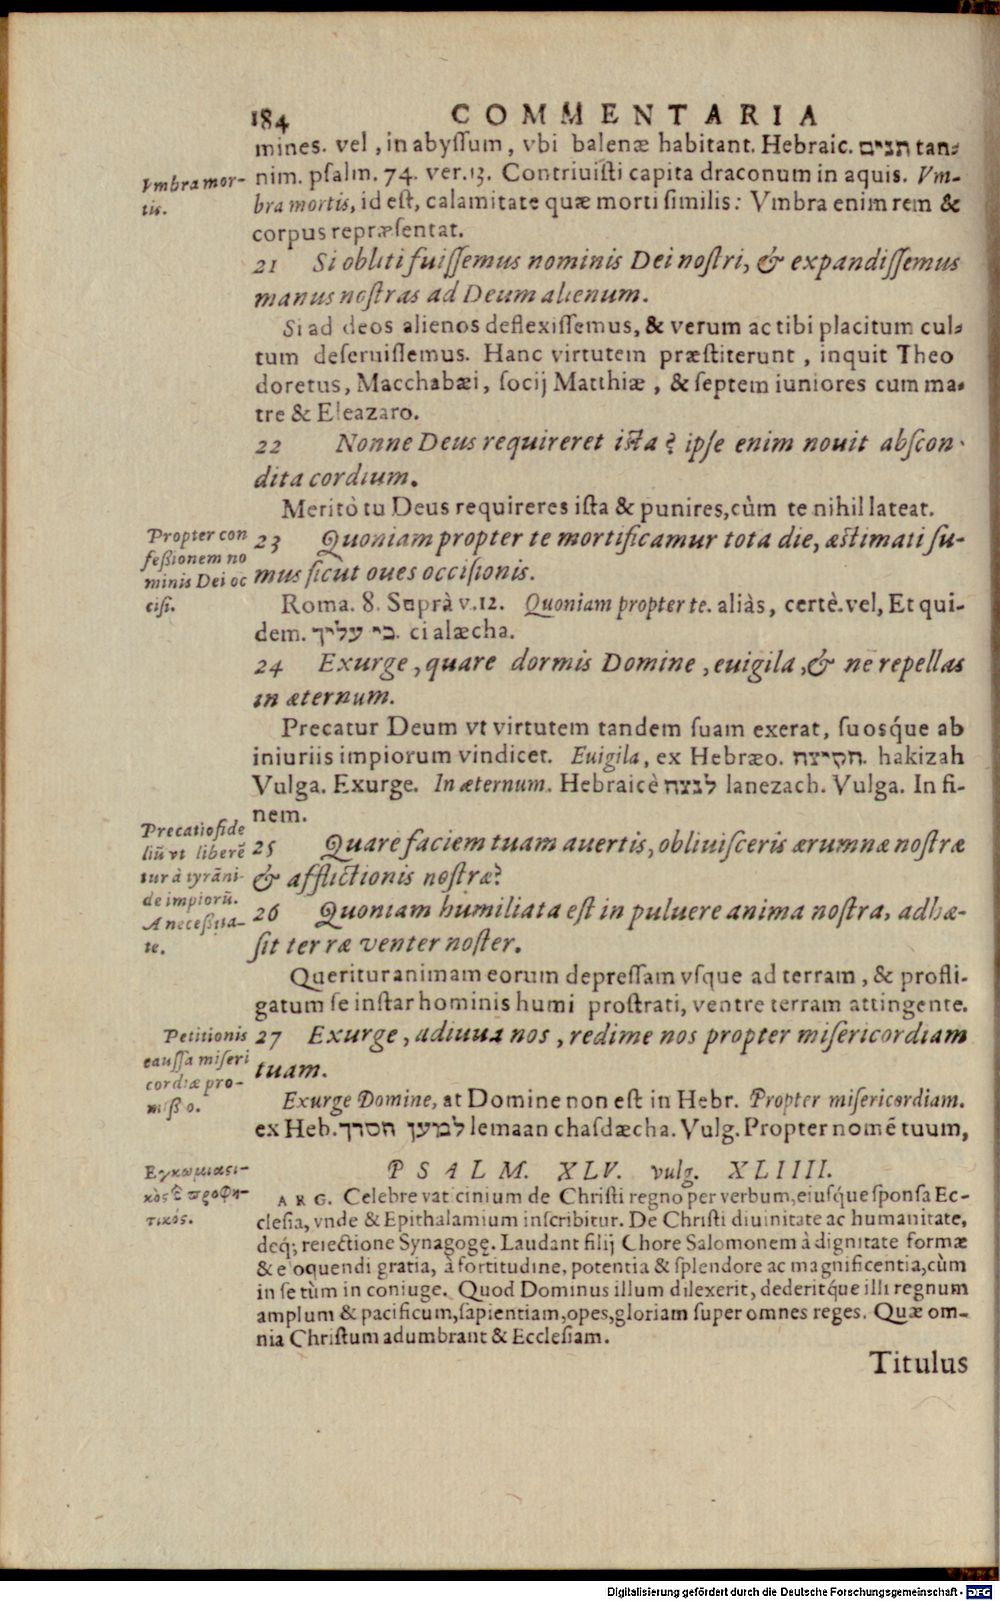 184 COMMENTARIA
mines. vel, in abyſſum, vbi balenæ habitant. Hebraic. תנים tan-
Vmbra mor-
tis.
nim. pſalm. 74. ver. 13. Contriuiſti capita draconum in aquis. Vm-
bra mortis, id eſt, calamitate quæ morti ſimilis: Vmbra enim rem &
corpus repræſentat.
21 Si obliti fuiſſemus nominis Dei noſtri, & expandiſſemus
manus noſtras ad Deum alienum.
Si ad deos alienos deflexiſſemus, & verum ac tibi placitum cul-
tum deſeruiſſemus. Hanc virtutem præſtiterunt, inquit Theo
doretus, Macchabæi, ſocij Matthiæ, & ſeptem iuniores cum ma-
tre & Eleazaro.
22 Nonne Deus requireret iſta? ipſe enim nouit abſcon-
dita cordium.
Meritò tu Deus requireres iſta & punires, cùm te nihil lateat.
Propter con
feßionem no
minis Dei oc
ciſi.
23 Quoniam propter te mortificamur tota die, æſtimati ſu-
mus ſicut oues occiſionis.
Roma. 8. Suprà v. 12. Quoniam propter te. aliàs, certè. vel, Et qui-
dem. כי עליך. ci alæcha.
24 Exurge, quare dormis Domine, euigila, & ne repellas
in æternum.
Precatur Deum vt virtutem tandem ſuam exerat, ſuosq́ue ab
iniuriis impiorum vindicet. Euigila, ex Hebræo. הקיצה. hakizah
Vulga. Exurge. In æternum. Hebraicè לנצח lanezach. Vulga. In fi-
nem.
Precatio fide
liũ vt liberẽ
tur à tyrãni-
de impiorũ.
A neceßita-
te.
25 Quare faciem tuam auertis, obliuiſceris ærumnæ noſtræ
& afflictionis noſtræ?
26 Quoniam humiliata eſt in puluere anima noſtra, adhæ-
ſit terræ venter noſter.
Queritur animam eorum depreſſam vſque ad terram, & profli-
gatum ſe inſtar hominis humi proſtrati, ventre terram attingente.
Petitionis
cauſſa miſeri
cordiæ pro-
mißio.
27 Exurge, adiuua nos, redime nos propter miſericordiam
tuam.
Exurge Domine, at Domine non eſt in Hebr. Propter miſericordiam.
ex Heb. למען חסדך lemaan chaſdæcha. Vulg. Propter nomẽ tuum,
Εγκωμιαςι-
κὸς & προφη-
τικός.
PSALM. XLV. vulg. XLIIII.
ARG. Celebre vaticinium de Chriſti regno per verbum, eiuſq́ue ſponſa Ec-
cleſia, vnde & Epithalamium inſcribitur. De Chriſti diuinitate ac humanitate,
deq́; reiectione Synagogę. Laudant filij Chore Salomonem à dignitate formæ
& eloquendi gratia, à fortitudine, potentia & ſplendore ac magnificentia, cùm
in ſe tùm in coniuge. Quod Dominus illum dilexerit, dederitq́ue illi regnum
amplum & pacificum, ſapientiam, opes, gloriam ſuper omnes reges. Quæ om-
nia Chriſtum adumbrant & Eccleſiam.
Titulus
Digitalisierung gefördert durch die Deutsche Forschungsgemeinschaft - DFG